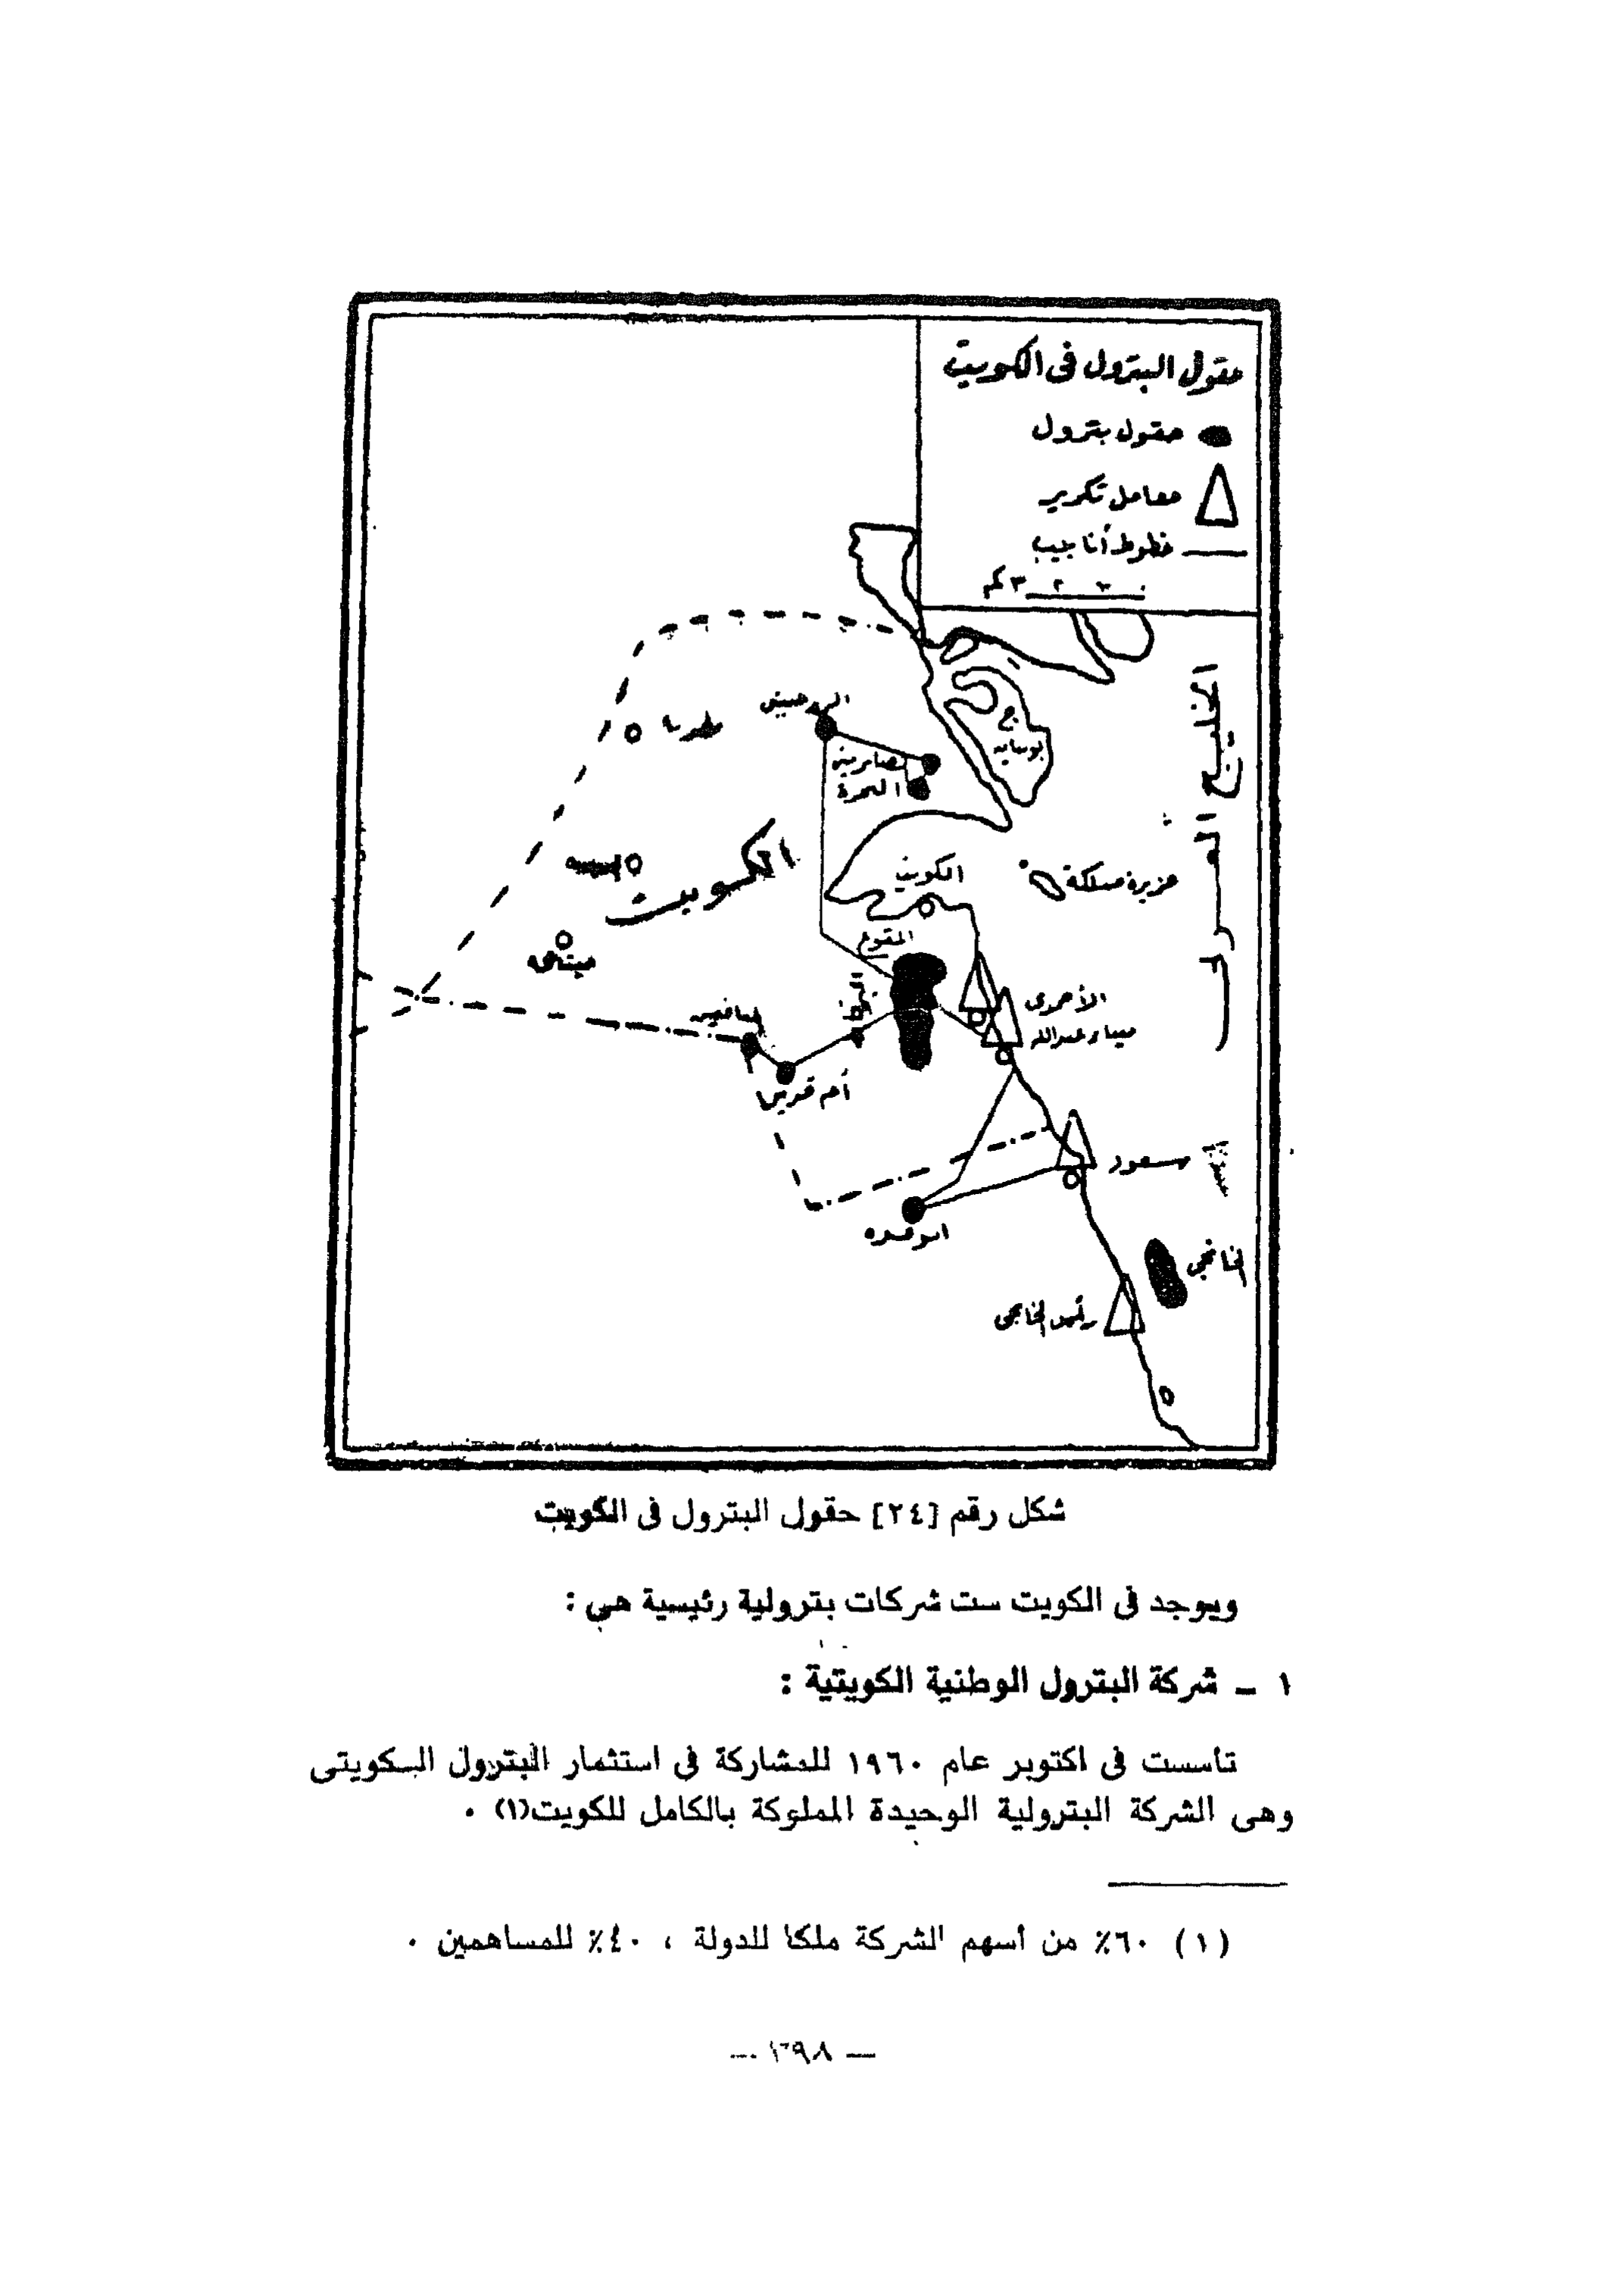 حقول البترول فى الكويت
حقول بترول
معامل تكرير
خطوط أنابيب
كم
الخليج
العراق
صابرية
البحرة
بوبيان
الكويت
الكويت
جزيرة مسكلة
المقوع
الأحمدى
ميناء عبدالله
أم قدير
سعود
الخافجى
رأس الخافجى
شكل رقم [٢٤] حقول البترول فى الكويت
ويوجد فى الكويت ست شركات بترولية رئيسية هى :
١ ــ شركة البترول الوطنية الكويتية :
تأسست فى اكتوبر عام ١٩٦٠ للمشاركة فى استثمار البترول الكويتى
وهى الشركة البترولية الوحيدة المملوكة بالكامل للكويت(١) ٠
(١) ٦٠٪ من أسهم الشركة ملكا للدولة ، ٤٠٪ للمساهمين ٠
— ٣٩٨ —